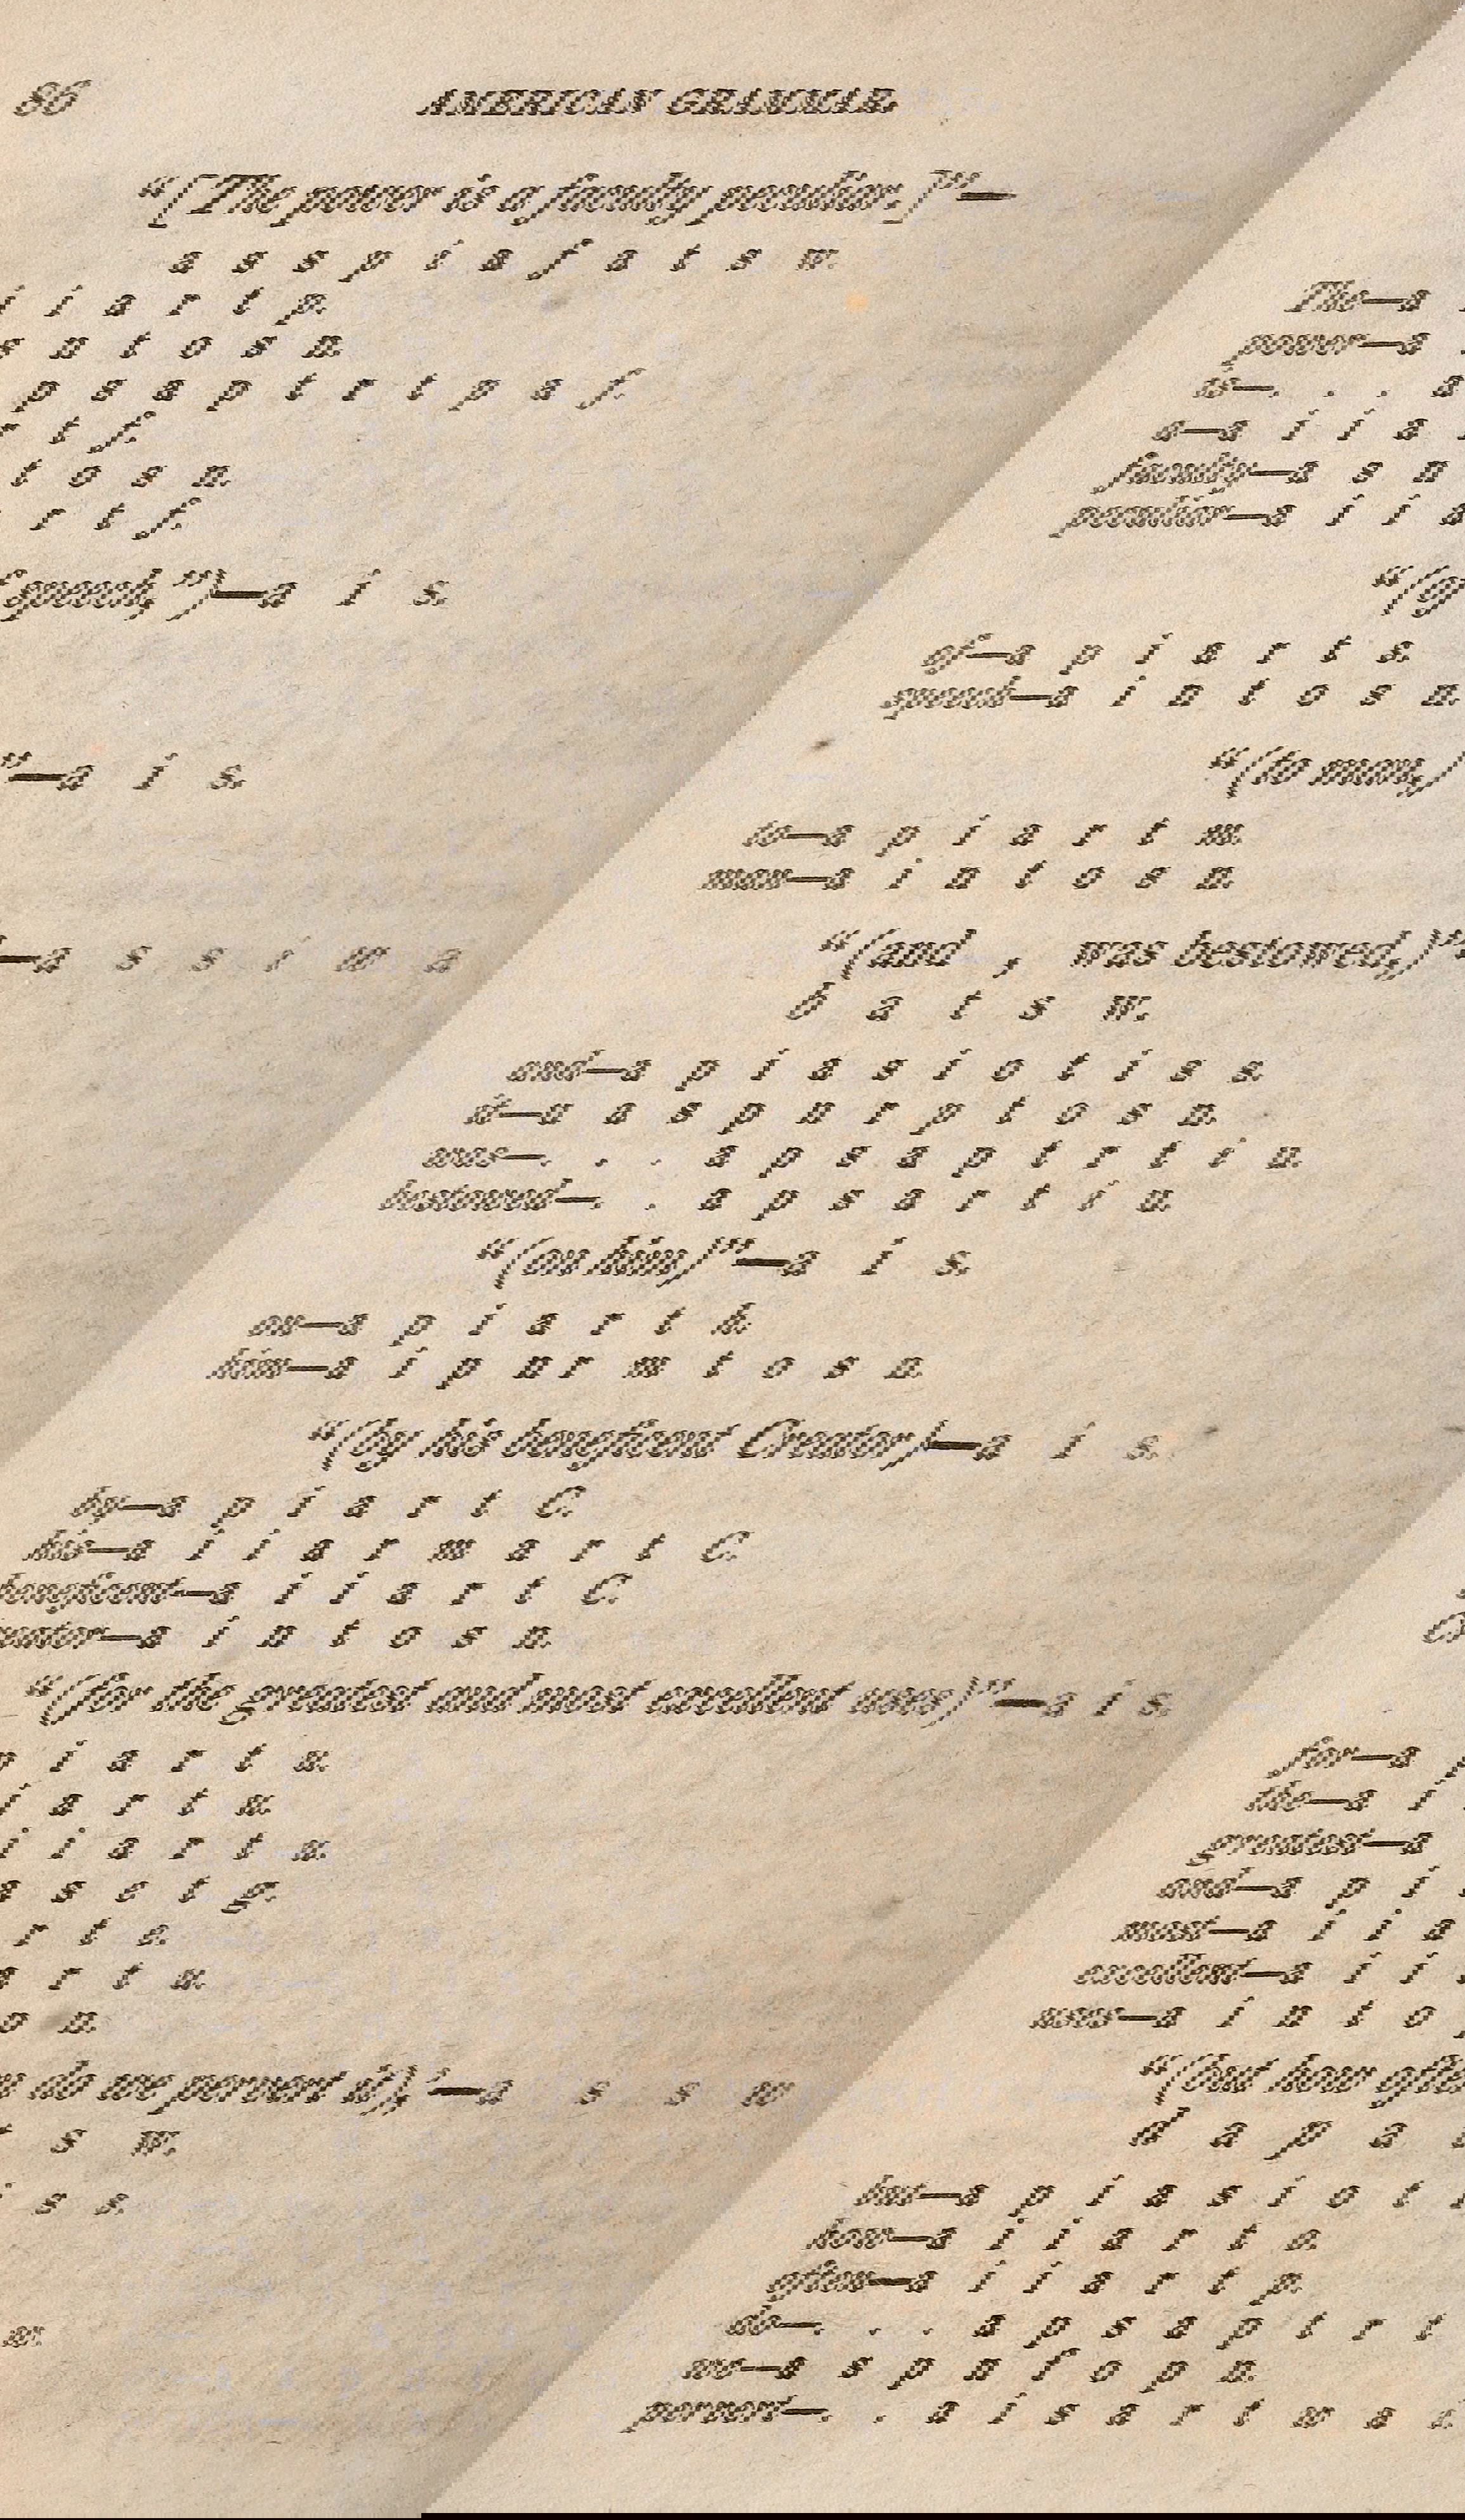 86 AMERICAN GRAMMAR.
“[The power is a faculty peculiar.]”—
a s s p i a f a t s m.
The—a i i a r t p.
power—a s n t o s n.
is—. . . a p s a p t r t p a f.
a—a i i a r t f.
faculty—a s n t o s n.
peculiar—a i i a r t f.
“(of speech,”)—a i s.
of—a p i a r t s.
speech—a i n t o s n.
“(to man,)”—a i s.
to—a p i a r t m.
man—a i n t o s n.
“(and , was bestowed,)”—a s s i w a
b a t s m.
and—a p i a s i o t i s s.
it—a a s p n r p t o s n.
was—. . . a p s a p t r t i a.
bestowed—. . a p s a r t i a.
“(on him)”—a i s.
on—a p i a r t h.
him—a i p n r m t o s n.
“(by his beneficent Creator)—a i s.
by—a p i a r t C.
his—a i i a r m a r t C.
beneficent—a i i a r t C.
Creator—a i n t o s n.
“(for the greatest and most excellent uses)”—a i s.
for—a p i a r t u.
the—a i i a r t u.
greatest—a i i a r t u.
and—a p i a s c t g.
most—a i i a r t e.
excellent—a i i a r t u.
uses—a i n t o p n.
“(but how often do we pervert it),’—a s s w
d a p a t s m.
but—a p i a s i o t i s s.
how—a i i a r t o.
often—a i i a r t p.
do—. . . a p s a p t r t w.
we—a s p n f o p n.
pervert—. . a i s a r t w a i.